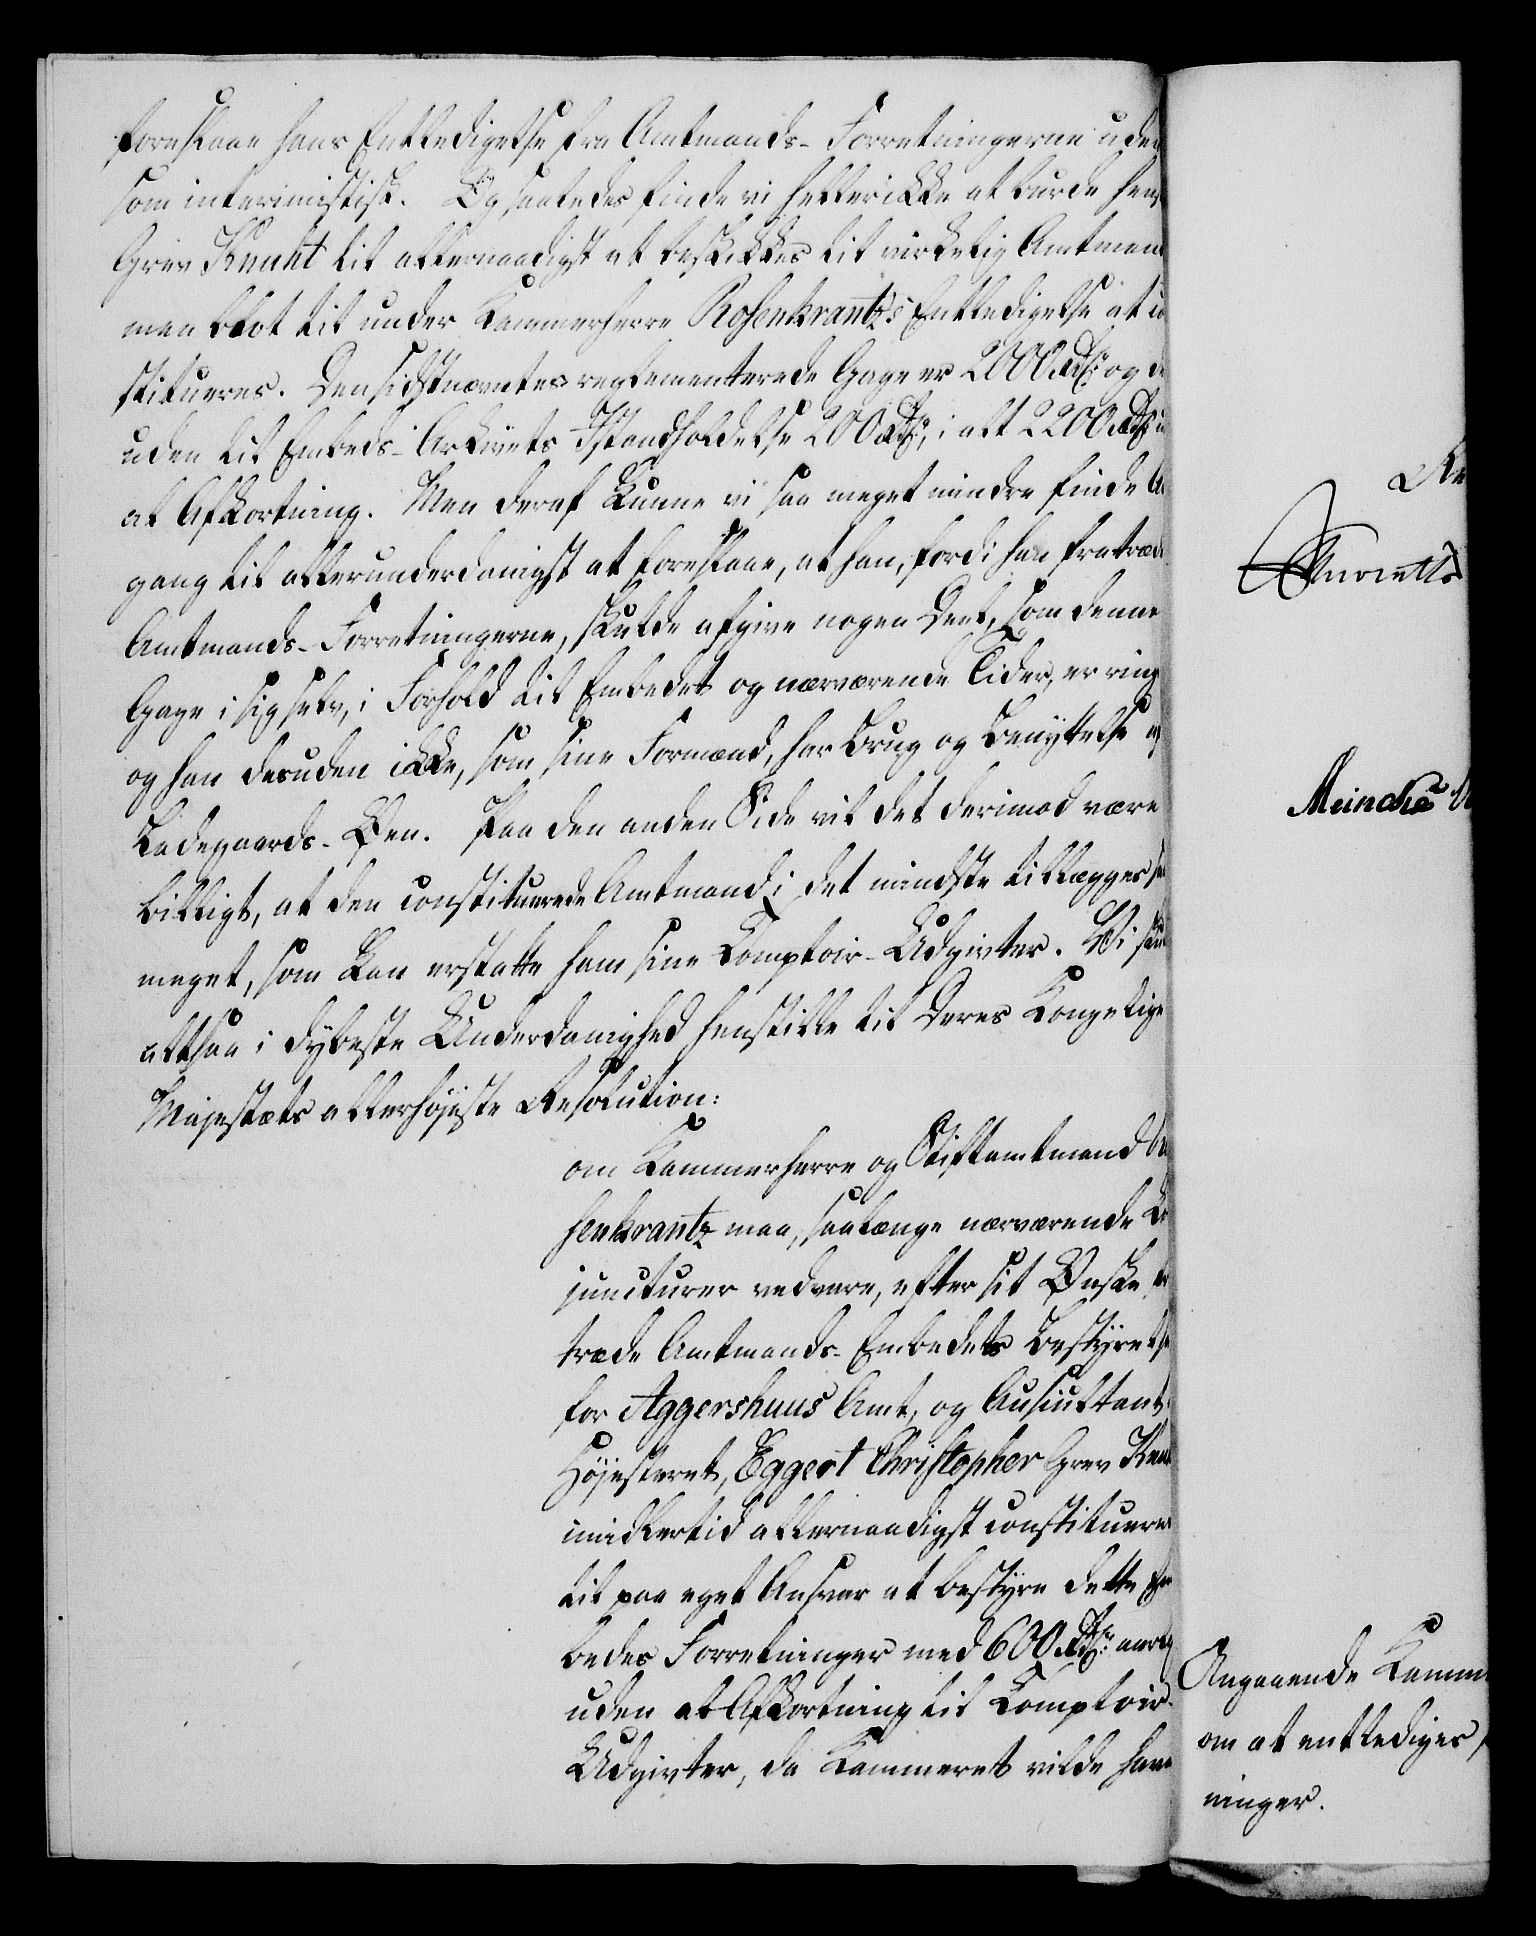 foreslaae hans Entledigelse fra Amtmands-Forretningerne uden
som interimistisk. Og saaledes finde vi heller ikke at burde
Grev Knuht til allernaadigst at beskikkes til virkelig Amtmand
men blot til under Kammerherre Rosenkrantz's Entledigelse at
stitueres. Den sidstnævntes reglementerede Gage er 2000 Rdlr. og
uden til Embeds-Arkivets Istandholdelse 200 Rdlr., i alt 2200 Rdlr.
al Afkortning. Men deraf kunne vi saa meget mindre finde
gang til allerunderdanigst at foreslaae, at han, fordi han fratræd
Amtmands-Forretningerne, skulde afgive nogen Deel, som denne
Gage i sig selv, i Forhold til Embedet og nærværende Tider, er ring
og han desuden ikke, som sine Formænd, har Brug og Benyttelse af
Ladegaards-Øen. Paa den anden Side vil det derimod være
billigt, at den constituerede Amtmand i det mindste tillægges saa
meget, som kan erstatte ham sine Comptoir-Udgivter. Vi
altsaa i dybeste Underdanighed henstille til Deres Kongelige
Majestæts allerhøjeste Resolution:
om Kammerherre og Stiftamtmand
senkrantz maa, saalænge nærværende
juncturer vedvare, efter sit Ønske
træde Amtmands-Embedets Bestyrelse
for Aggershuus Amt, og Auscultant
Højesteret, Eggert Christopher Grev
imidlertid allernaadigst constitueres
til paa eget Ansvar at bestyre dette
bedes Forretninger med 600 Rdlr. aarlig
uden al Afkortning til Comptoir-
Udgivter, da Kammeret vilde have
Meinche
Angaaende Kamm
om at entlediges
ninger.